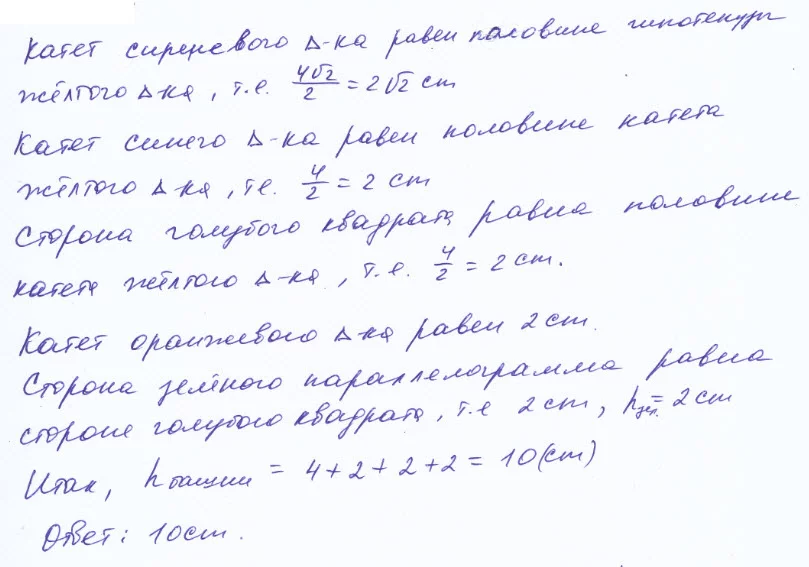 Катет сиреневого Δ-ка равен половине гипотенузы
жёлтого Δ-ка, т.е. 4√2/2 = 2√2 cm
Катет синего Δ-ка равен половине катета
жёлтого Δ-ка, т.е. 4/2 = 2 cm
Сторона голубого квадрата равна половине
катета жёлтого Δ-ка, т.е. 4/2 = 2 cm.
Катет оранжевого Δ-ка равен 2 cm.
Сторона зелёного параллелограмма равна
стороне голубого квадрата, т.е 2 cm, hзел. = 2 cm
Итак, h башни = 4 + 2 + 2 + 2 = 10 (cm)
Ответ: 10 cm.